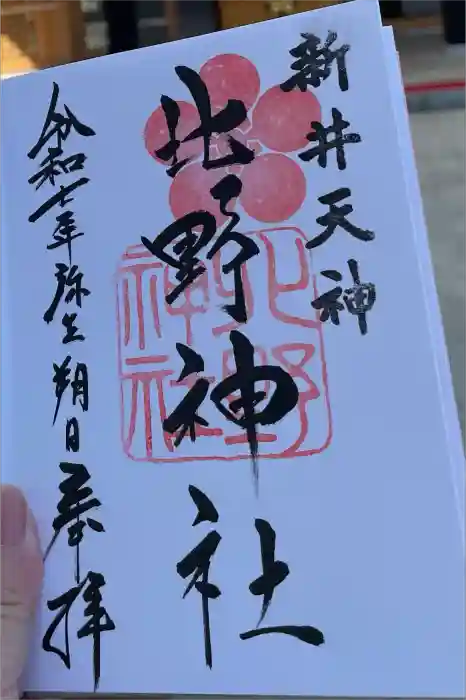 新井天神
北野神社
北野神社
令和七年弥生朔日奉拝